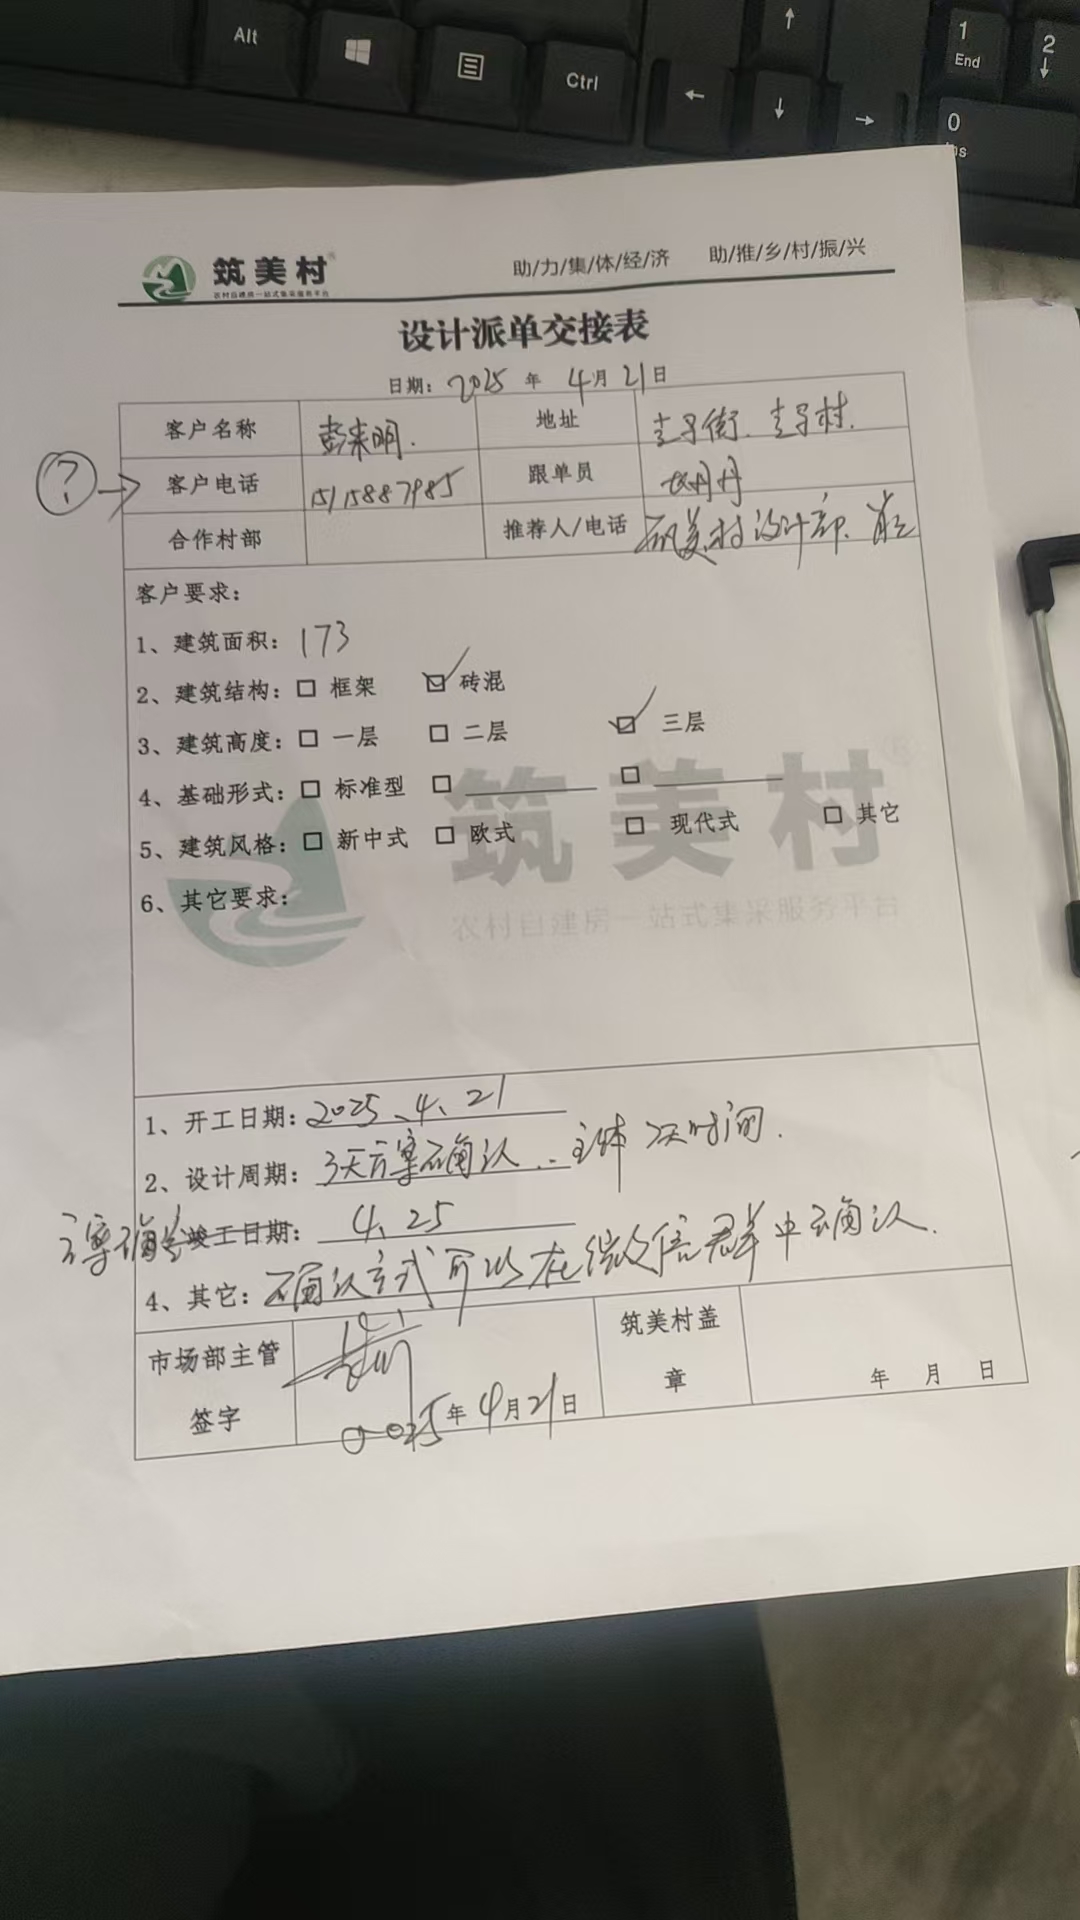 Alt
Ctrl
↑
←
↓
→
1
End
2
↓
0
Ins
筑美村
农村自建房一站式集采服务平台
助/力/集/体/经/济 助/推/乡/村/振/兴
设计派单交接表
日期: 2025 年 4月 21日
客户名称 彭来明. 地址
? → 客户电话 15115887985 跟单员 丹丹
合作村部 推荐人/电话 筑美村设计部.
客户要求:
1、建筑面积: 173
2、建筑结构: □ 框架 ☑ 砖混
3、建筑高度: □ 一层 □ 二层 ☑ 三层
4、基础形式: □ 标准型 □ □
5、建筑风格: □ 新中式 □ 欧式 □ 现代式 □ 其它
6、其它要求:
筑美村 ®
农村自建房一站式集采服务平台
1、开工日期: 2025、4、21
2、设计周期: 3天方案确认 .. 主体 2天时间.
方案确定 竣工日期: 4.25
4、其它: 确认方式可以在微信群中确认.
市场部主管 签字 2025年4月21日
筑美村盖章 年 月 日